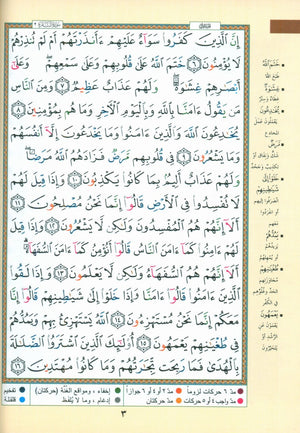 إِنَّ الَّذِينَ كَفَرُوا سَوَاءٌ عَلَيْهِمْ ءَأَنذَرْتَهُمْ أَمْ لَمْ تُنذِرْهُمْ
لَا يُؤْمِنُونَ ٦ خَتَمَ اللَّهُ عَلَىٰ قُلُوبِهِمْ وَعَلَىٰ سَمْعِهِمْ وَعَلَىٰ
أَبْصَٰرِهِمْ غِشَٰوَةٌ وَلَهُمْ عَذَابٌ عَظِيمٌ ٧ وَمِنَ النَّاسِ
مَن يَقُولُ ءَامَنَّا بِاللَّهِ وَبِالْيَوْمِ الْآخِرِ وَمَا هُم بِمُؤْمِنِينَ ٨
يُخَٰدِعُونَ اللَّهَ وَالَّذِينَ ءَامَنُوا وَمَا يَخْدَعُونَ إِلَّا أَنفُسَهُمْ
وَمَا يَشْعُرُونَ ٩ فِي قُلُوبِهِم مَّرَضٌ فَزَادَهُمُ اللَّهُ مَرَضًا
وَلَهُمْ عَذَابٌ أَلِيمٌ بِمَا كَانُوا يَكْذِبُونَ ١٠ وَإِذَا قِيلَ لَهُمْ
لَا تُفْسِدُوا فِي الْأَرْضِ قَالُوا إِنَّمَا نَحْنُ مُصْلِحُونَ ١١
أَلَا إِنَّهُمْ هُمُ الْمُفْسِدُونَ وَلَٰكِن لَّا يَشْعُرُونَ ١٢ وَإِذَا قِيلَ
لَهُمْ ءَامِنُوا كَمَا ءَامَنَ النَّاسُ قَالُوا أَنُؤْمِنُ كَمَا ءَامَنَ السُّفَهَاءُ
أَلَا إِنَّهُمْ هُمُ السُّفَهَاءُ وَلَٰكِن لَّا يَعْلَمُونَ ١٣ وَإِذَا لَقُوا
الَّذِينَ ءَامَنُوا قَالُوا ءَامَنَّا وَإِذَا خَلَوْا إِلَىٰ شَيَٰطِينِهِمْ قَالُوا إِنَّا
مَعَكُمْ إِنَّمَا نَحْنُ مُسْتَهْزِءُونَ ١٤ اللَّهُ يَسْتَهْزِئُ بِهِمْ وَيَمُدُّهُمْ
فِي طُغْيَٰنِهِمْ يَعْمَهُونَ ١٥ أُولَٰئِكَ الَّذِينَ اشْتَرَوُا الضَّلَٰلَةَ
بِالْهُدَىٰ فَمَا رَبِحَت تِّجَٰرَتُهُمْ وَمَا كَانُوا مُهْتَدِينَ ١٦
خَتَمَ اللَّهُ
طَبَعَ اللَّهُ
غِشَاوَةٌ
يُخَادِعُونَ
مَرَضٌ
خَلَوْا إِلَى
شَيَاطِينِهِمْ
يَمُدُّهُمْ
طُغْيَانِهِمْ
يَعْمَهُونَ
مدّ ٦ حركات لزوماً
مدّ ٢ أو ٤ أو ٦ جوازاً
إخفاء، ومواقع الغُنَّة (حركتان)
تفخيم
مدّ واجب ٤ أو ٥ حركات
مدّ حركتان
إدغام، وما لا يُلفَظ
قلقلة
٣